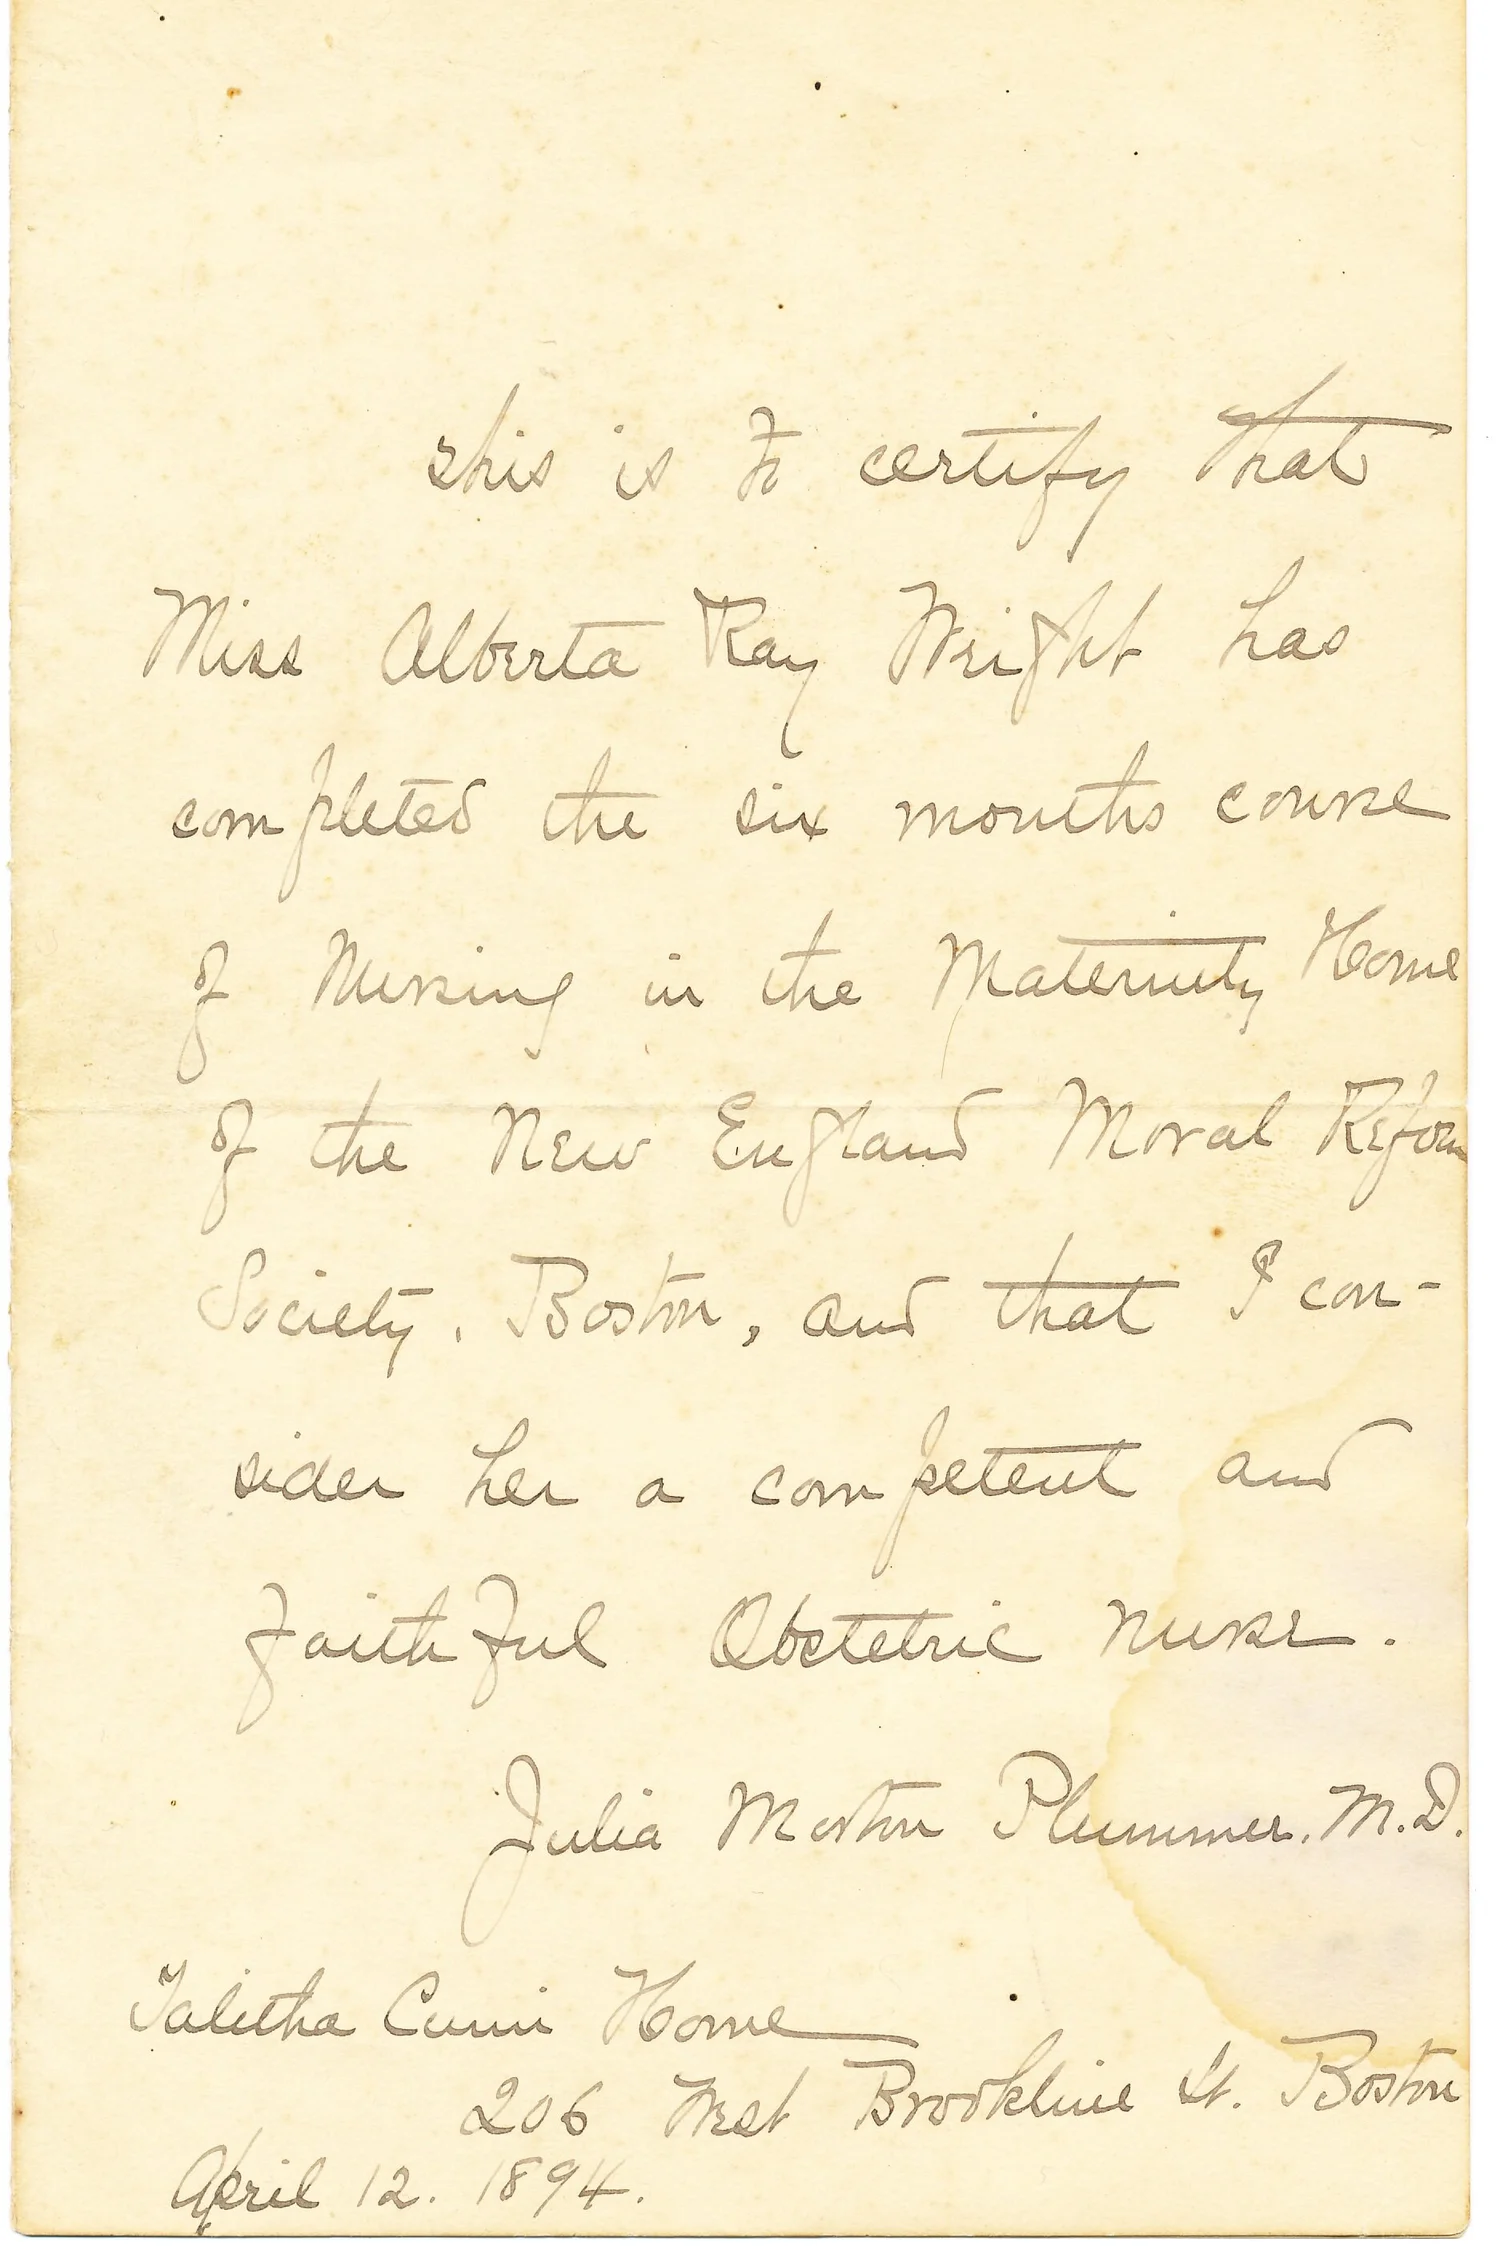 This is to certify that
Miss Alberta Ray Wright has
completed the six months course
of Nursing in the Maternity Home
of the New England Moral Reform
Society, Boston, and that I con-
sider her a competent and
faithful Obstetric nurse.
Julia Morton Plummer, M.D.
Talitha Cumi Home
206 West Brookline St. Boston
April 12. 1894.